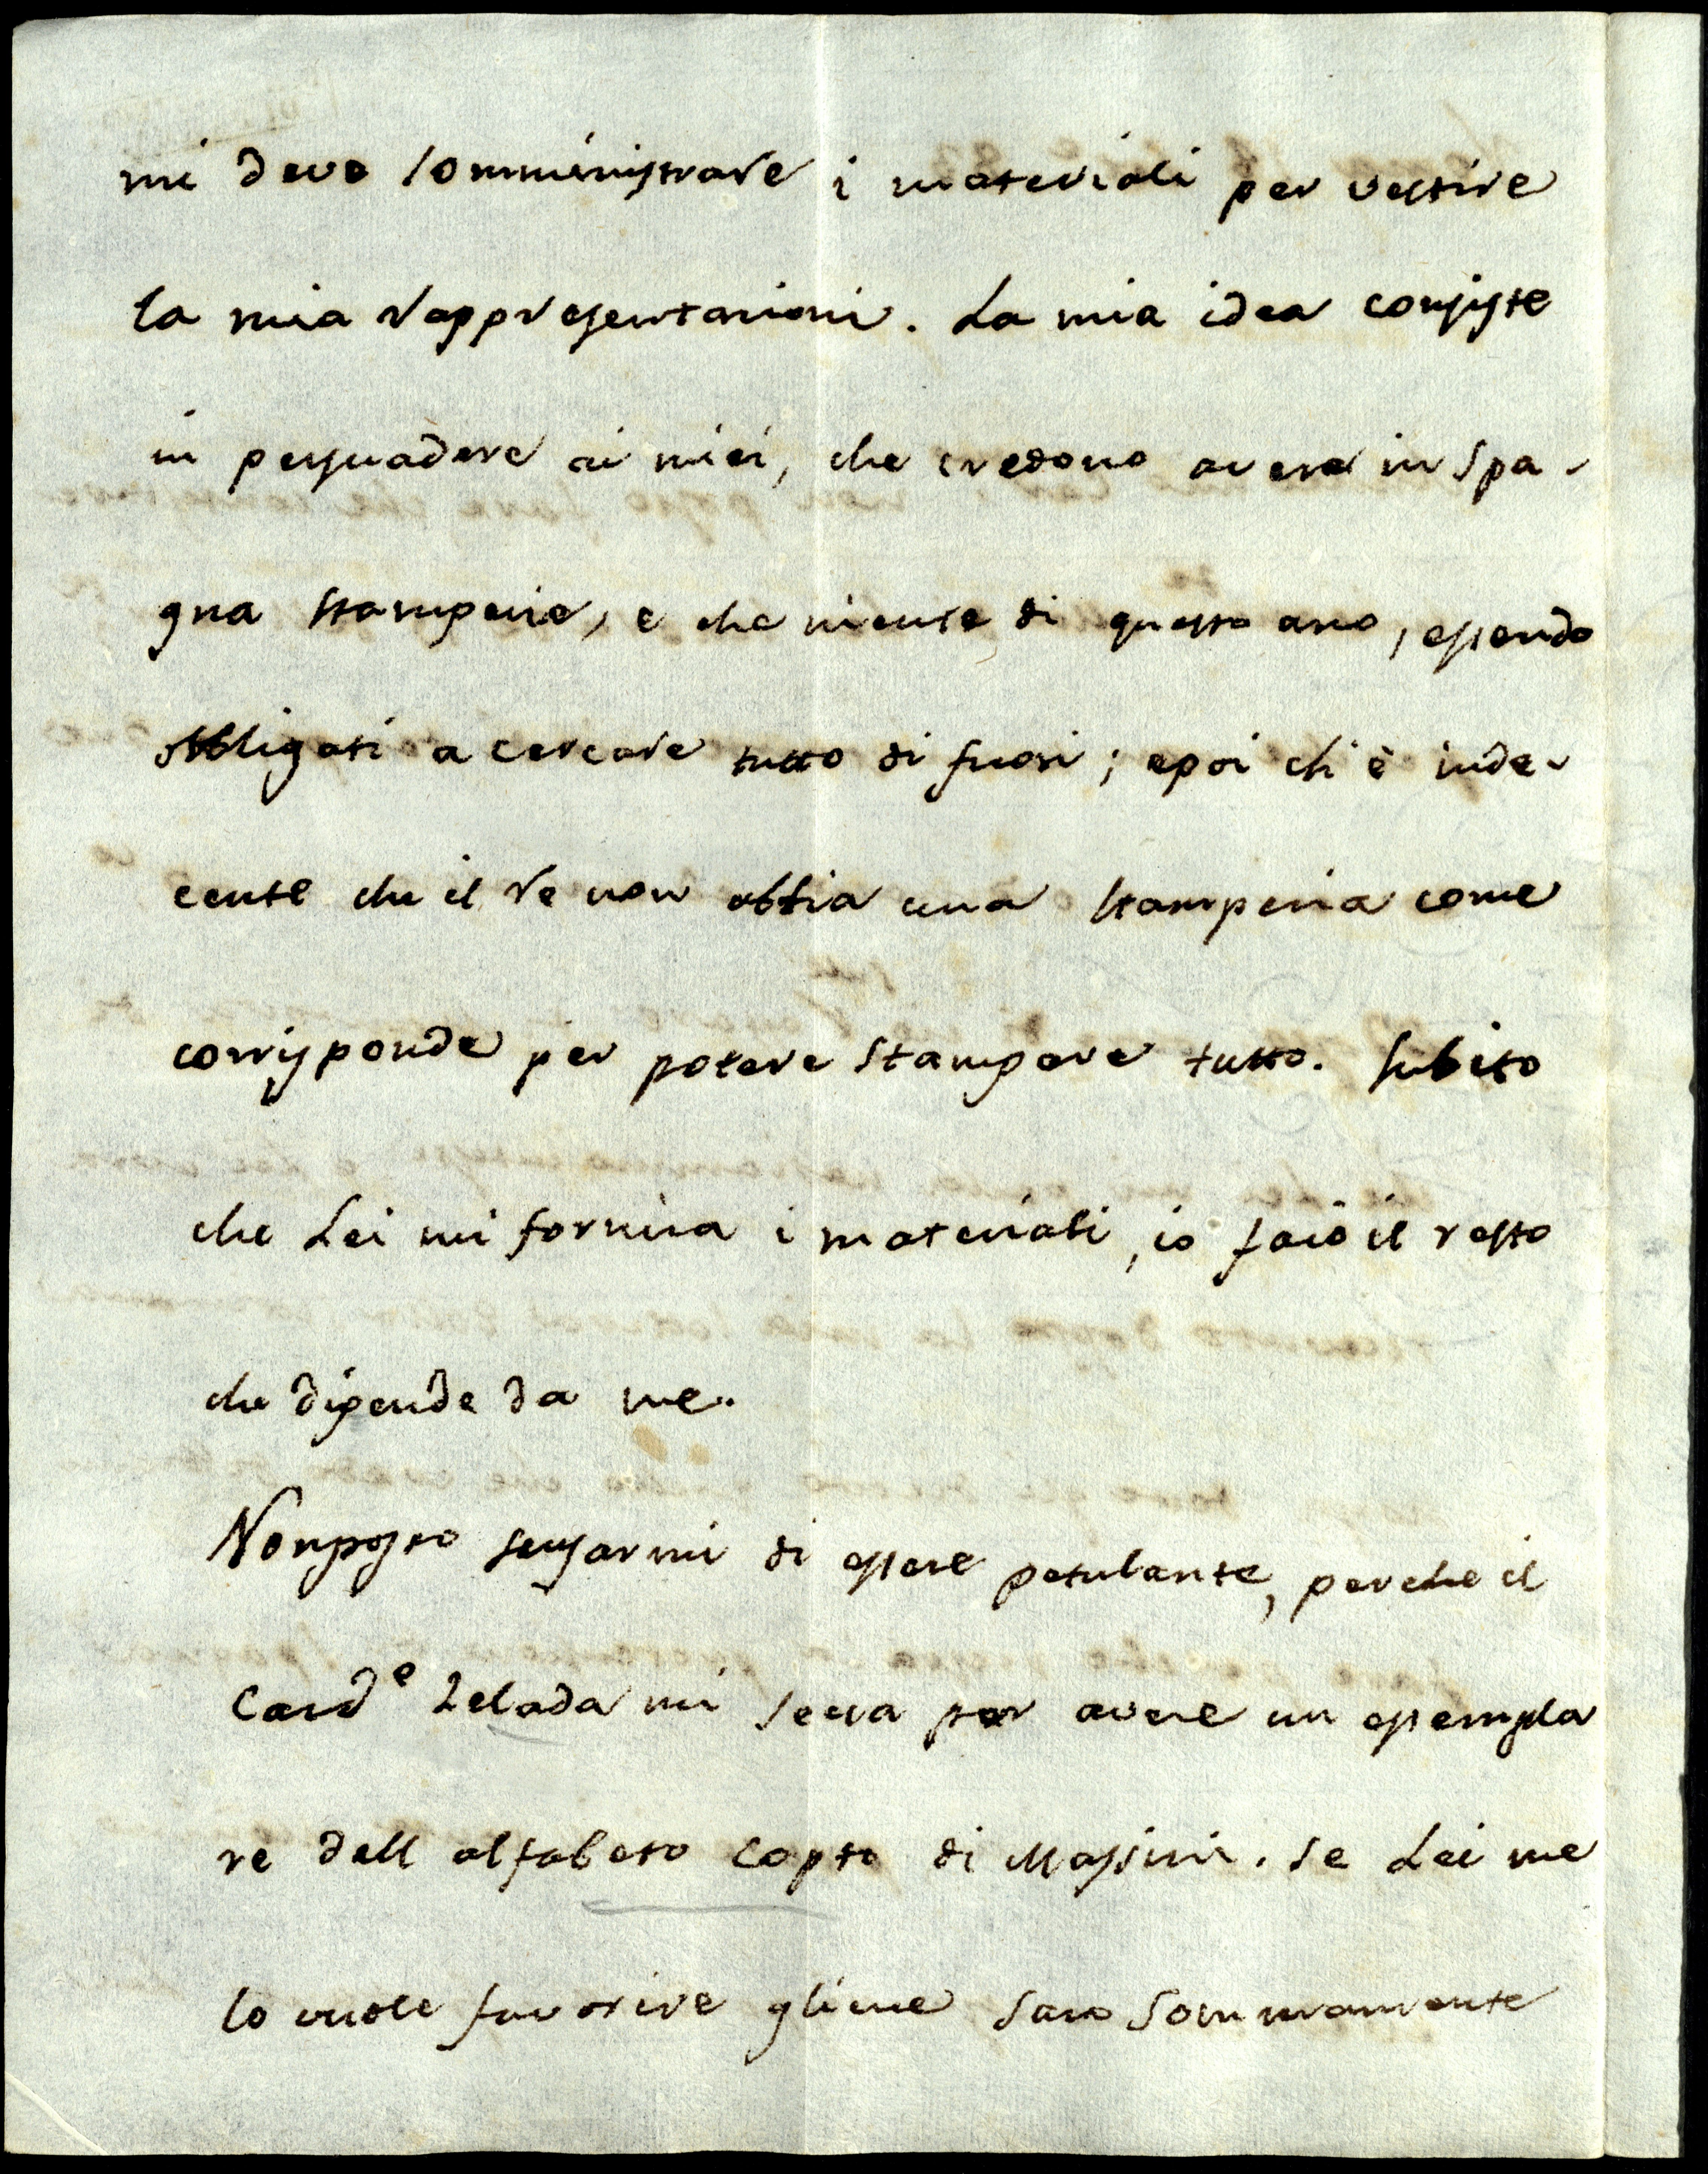 mi deve somministrare i materiali per vestire
la mia rappresentazioni. La mia idea consiste
in persuadere ai miei, che credono avere in Spa-
gna stamperie, e che niente di questo ano, essendo
obbligati a cercare tutto di fuori; e poi ch'è inde-
cente che il re non abbia una stamperia come
corrisponde per potere stampare tutto. Subito
che Lei mi fornira i materiali, io farò il resto
che dipende da me.
Non posso scusarmi di essere petulante, perche il
Card.e Zelada mi secca per avere un essempla
re dell alfabeto copto di Massimi. Se Lei me
lo vuole favorire gliene saro sommamente